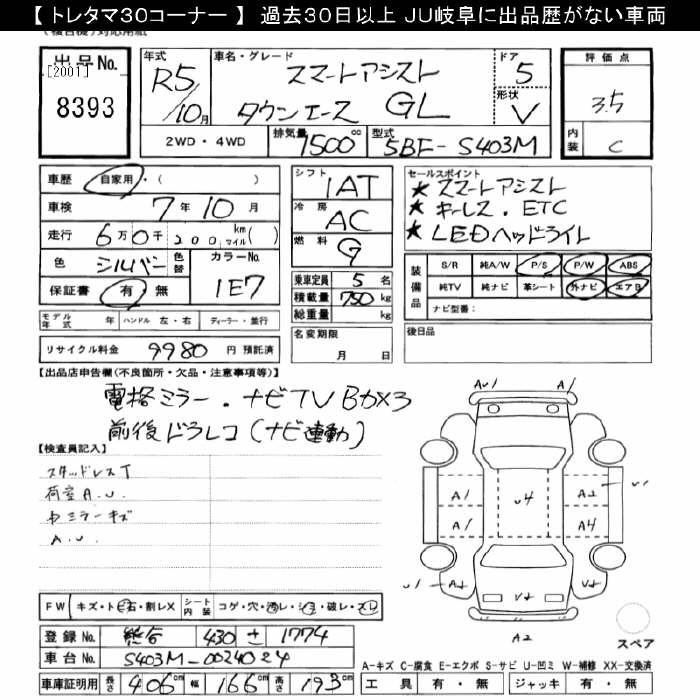 【トレタマ30コーナー】 過去30日以上 JU岐阜に出品歴がない車両
出品No.
[2001]
8393
年式 R5/10月
車名・グレード
スマートアシスト
タウンエース GL
ドア 5
形状 V
評価点
3.5
内装 C
2WD・4WD
排気量 1500cc
型式 5BF-S403M
車歴 自家用・( )
車検 7年10月
走行 6万0千200 km マイル( )
色 シルバー
色替
カラーNo. 1E7
保証書 有 無
シフト 1AT
冷房 AC
燃料 G
乗車定員 5名
積載量 750kg
総重量 kg
名変期限
月 日
セールスポイント
★スマートアシスト
★キーレス.ETC
★LEDヘッドライト
装備品
S/R 純A/W P/S P/W ABS
純TV 純ナビ 革シート 外ナビ エアB
ナビ型番:
後日品
モデル年式 年 ハンドル 左・右 ディーラー・並行
リサイクル料金 9980 円 預託済
【出品店申告欄(不良箇所・欠品・注意事項等)】
電格ミラー.ナビTVBカメラ
前後ドラレコ(ナビ連動)
【検査員記入】
スタッドレスT
荷室A.U.
ミラーキズ
A.U.
AU1 A1
A1 U4 A2 U1
A1 A4
U1 A2 U2 U2
A2
スペア
FW キズ・ト 石・割レX
シート内装 コゲ・穴・汚レ・シミ・破レ・スレ
登録No. 熊谷 430 さ 1774
車台No. S403M-0024024
車庫証明用 長さ 406cm 幅 166cm 高さ 193cm
A-キズ C-腐食 E-エクボ S-サビ U-凹ミ W-補修 XX-交換済
工具 有・無 ジャッキ 有・無